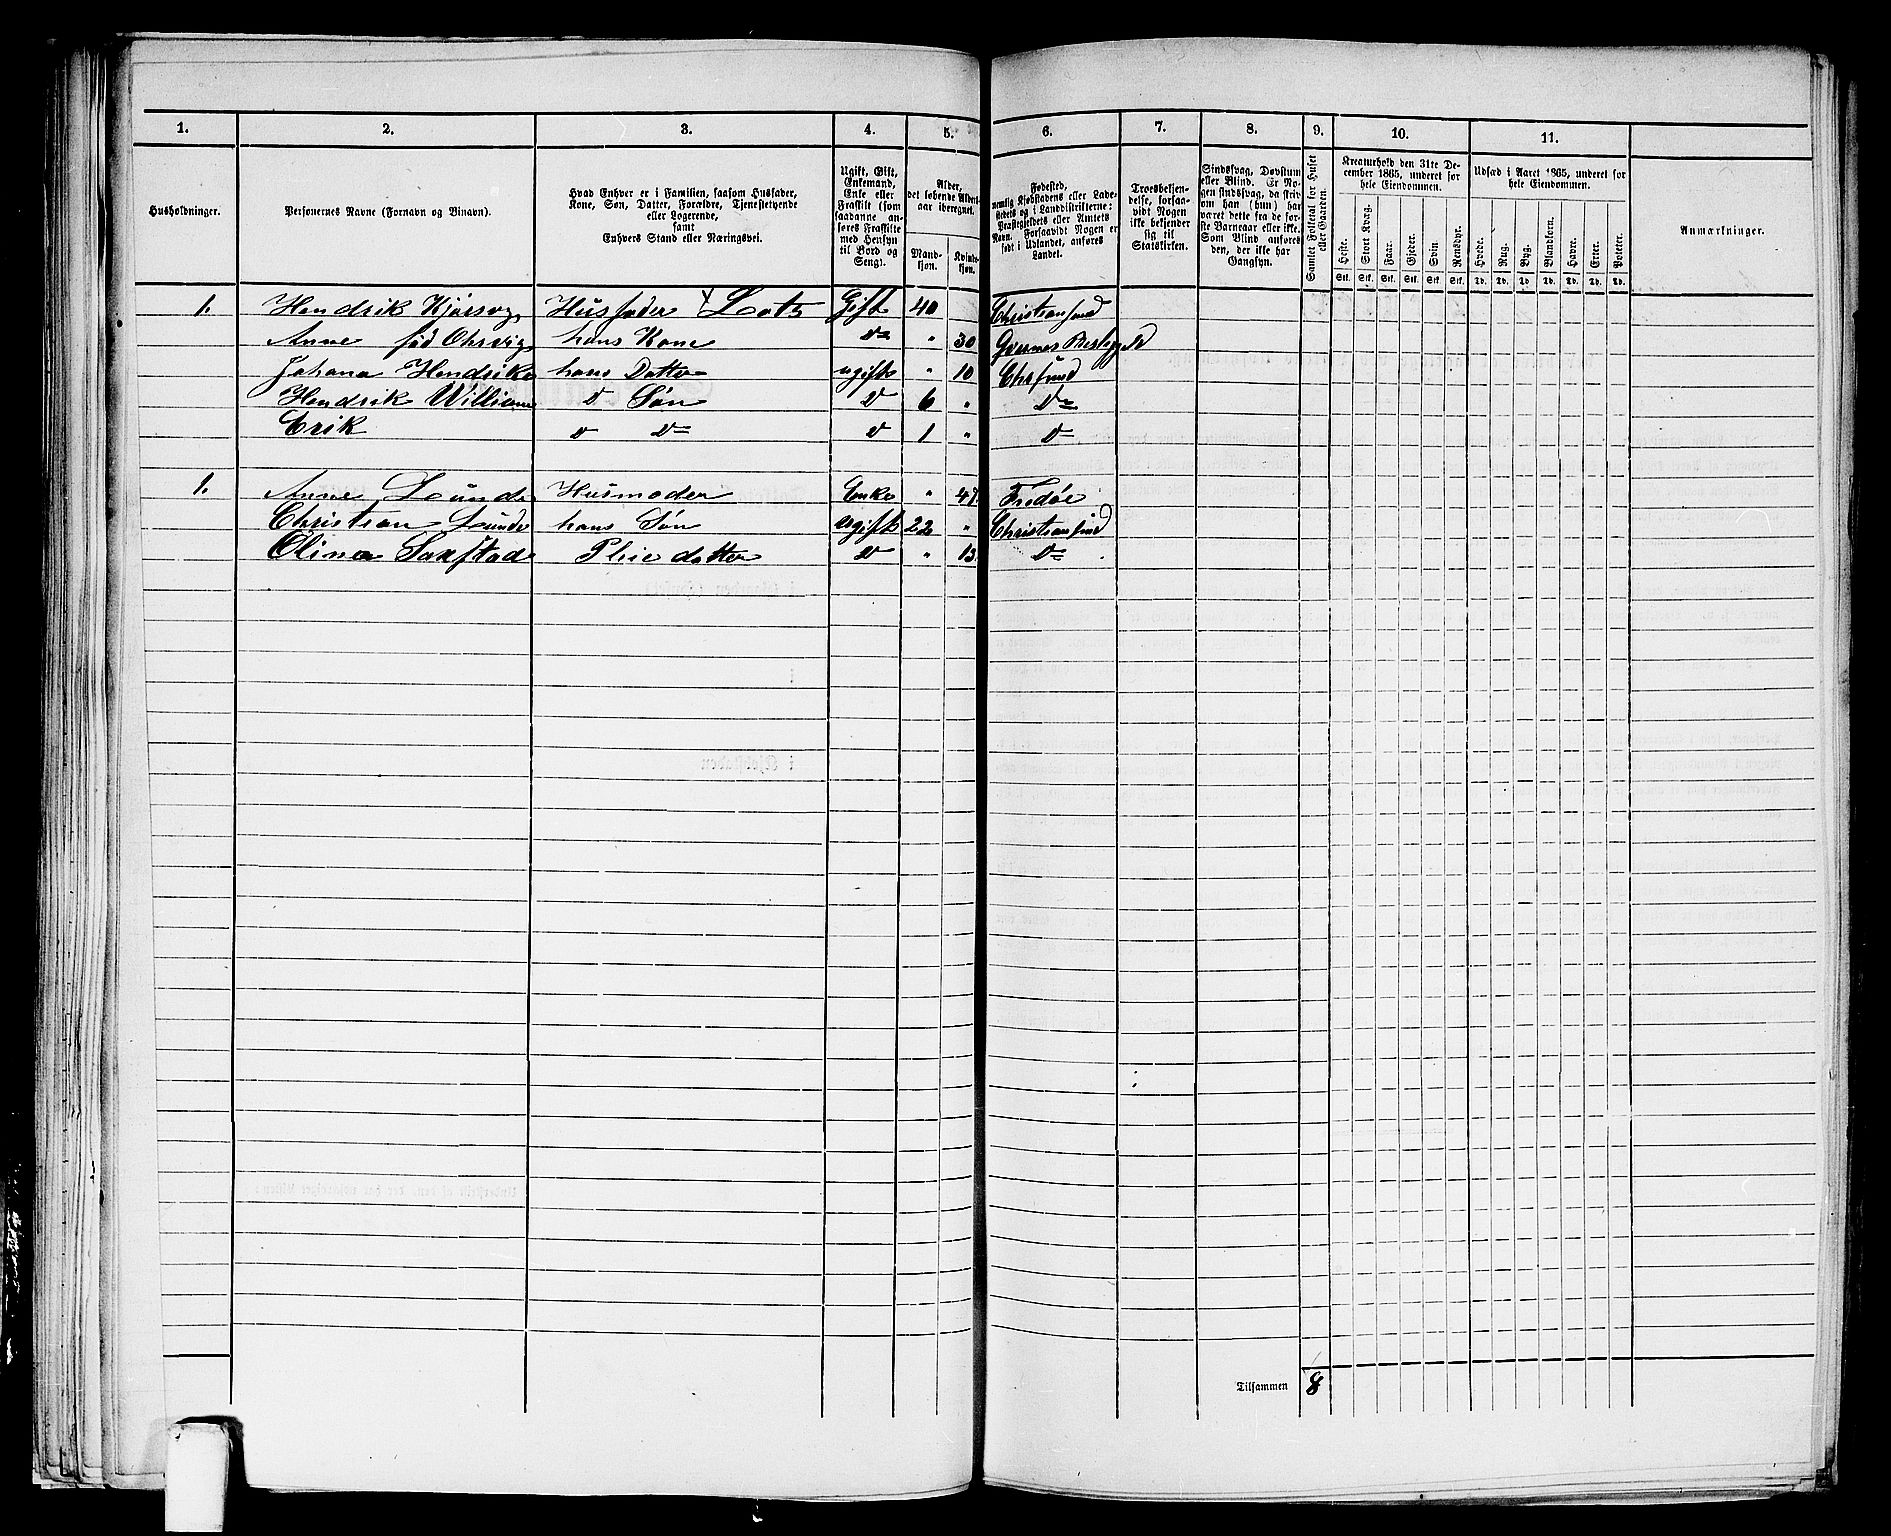 1. 2. 3. 4. 5. 6. 7. 8. 9. 10. 11.
Husholdninger.
Personernes Navne (Fornavn og Binavn).
Hvad Enhver er i Familien, saasom Husfader,
Kone, Søn, Datter, Forældre, Tjenestetyende
eller Logerende,
samt
Enhvers Stand eller Næringsvei.
Ugift, Gift,
Enkemand,
Enke eller
Fraskilt (som
saadanne an-
føres Fraskilte
med Hensyn
til Bord og
Seng).
Alder,
det løbende Alders-
aar iberegnet.
Mand-
kjøn.
Kvinde-
kjøn.
Fødested,
nemlig Kjøbstadens eller Lade-
stedets og i Landdistrikterne:
Præstegjeldets eller Amtets
Navn. Forsaavidt Nogen er
født i Udlandet, anføres
Landet.
Troesbekjen-
delse, forsaa-
vidt Nogen
ikke bekjender
sig til
Statskirken.
Sindssvag, Døvstum
eller Blind. Er No-
gen sindssvag, da skriv
om han (hun) har
været dette fra de før-
ste Barneaar eller ikke.
Som Blind anføres
den, der ikke har
Gangsyn.
Samlet Folketal for Huset
eller Gaarden.
Kreaturhold den 31te De-
cember 1865, underet for
hele Eiendommen.
Heste. Stort Kvæg. Faar. Gjeder. Svin. Rensdyr.
Stk. Stk. Stk. Stk. Stk. Stk.
Udsæd i Aaret 1865, underet for
hele Eiendommen.
Hvede. Rug. Byg. Blandkorn. Havre. Erter. Poteter.
Td. Td. Td. Td. Td. Td. Td.
Anmærkninger.
1. Hendrik Kjørsvig Husfader Lots Gift 40 Christiansund
Anne fød Ohrvig hans Kone Do " 30
Johana Hendrike hans Datter ugift " 10 Chrsund
Hendrik William D Søn D 6 " Do
Erik D Do D 1 " Do
1. Anne Lunde Husmoder Enke " 47 Fredøe
Christian Lunde hans Søn Ugift 22 " Christiansund
Olina Saxstad Pleie datter D " 13 Do
Tilsammen 8